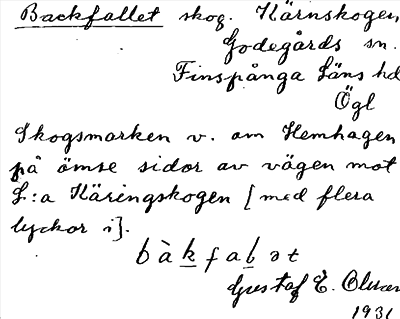 Backfallet skog. Kärnskogen,
Godegårds sn.
Finspånga Läns hd
Ögl
Skogsmarken v. om Hemhagen
på ömse sidor av vägen mot
L:a Käringskogen [med flera
lyckor i].
bàkfabət
Gustaf E. Olsson
1931